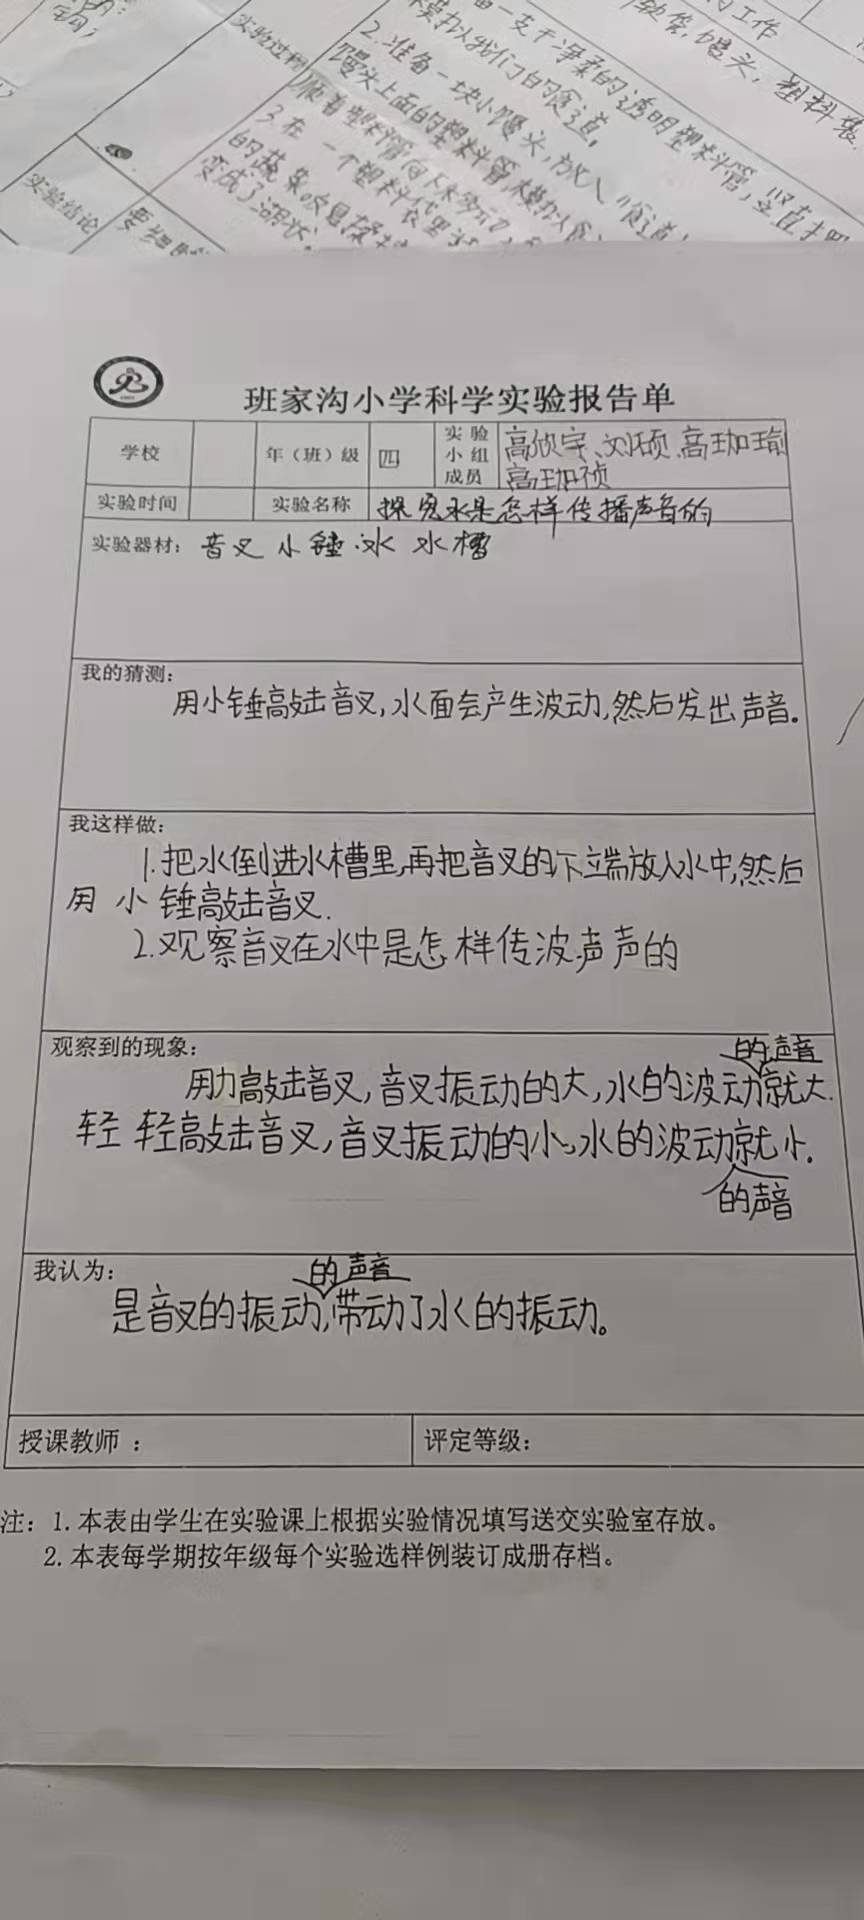 实验过程
实验结论
2.准备一块小馒头,放入"食道"
变成了湖状。
班家沟小学科学实验报告单
学校 年(班)级 四 实验小组成员 高欣宇、刘硕、高珈瑜
高珈祯
实验时间 实验名称 探究水是怎样传播声音的
实验器材: 音叉 小锤 水 水槽
我的猜测:
用小锤敲击音叉,水面会产生波动,然后发出声音.
我这样做:
1.把水倒进水槽里,再把音叉的下端放入水中,然后
用小锤敲击音叉.
2.观察音叉在水中是怎样传波声声的
观察到的现象:
的声音
用力敲击音叉,音叉振动的大,水的波动就大.
轻轻敲击音叉,音叉振动的小,水的波动就小.
的声音
我认为:
的声音
是音叉的振动,带动了水的振动。
授课教师: 评定等级:
注:1.本表由学生在实验课上根据实验情况填写送交实验室存放。
2.本表每学期按年级每个实验选样例装订成册存档。